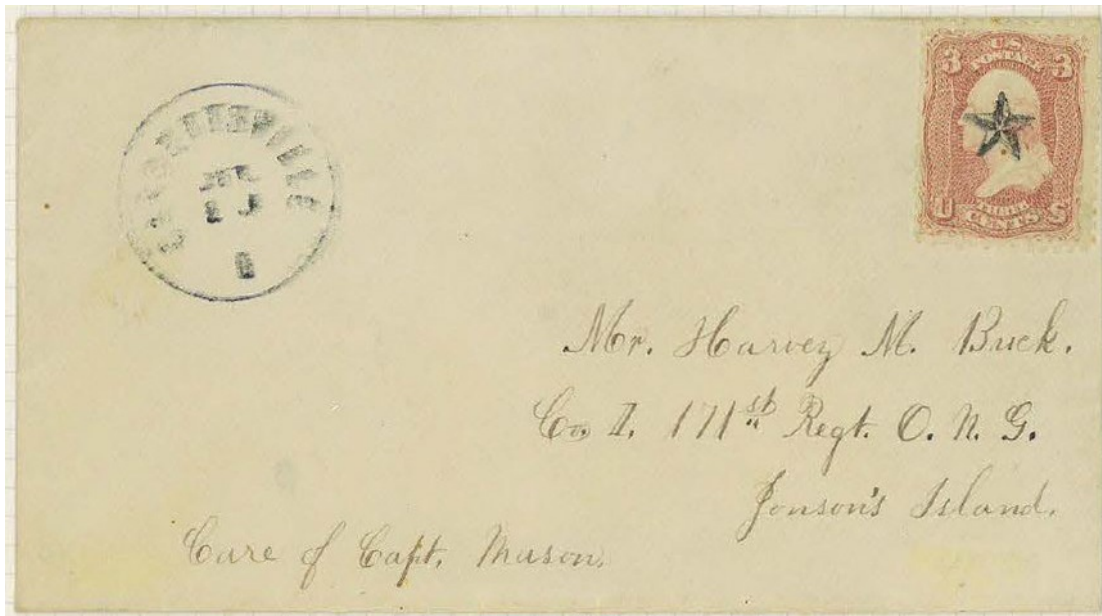 3 U.S. 3
POSTAGE
U CENTS S
Mr. Harvey M. Buck.
Co. I. 171st Regt. O. N. G.
Jonson's Island.
Care of Capt. Mason.